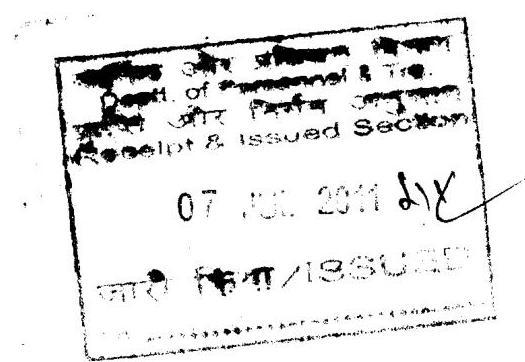 और
Deptt. of Personnel & Trg.
और निर्गम अनुभाग
Receipt & Issued Section
07 JUL 2011
जारी किया/ISSUED